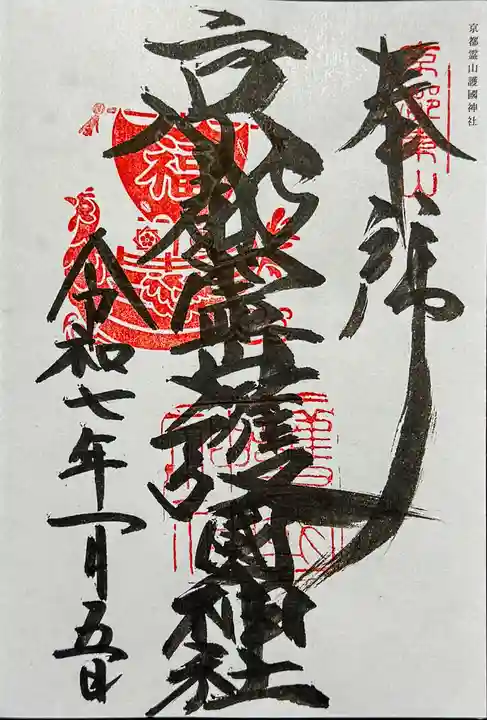 京都霊山護國神社
奉拝
京都霊山護國神社
令和七年一月五日
福